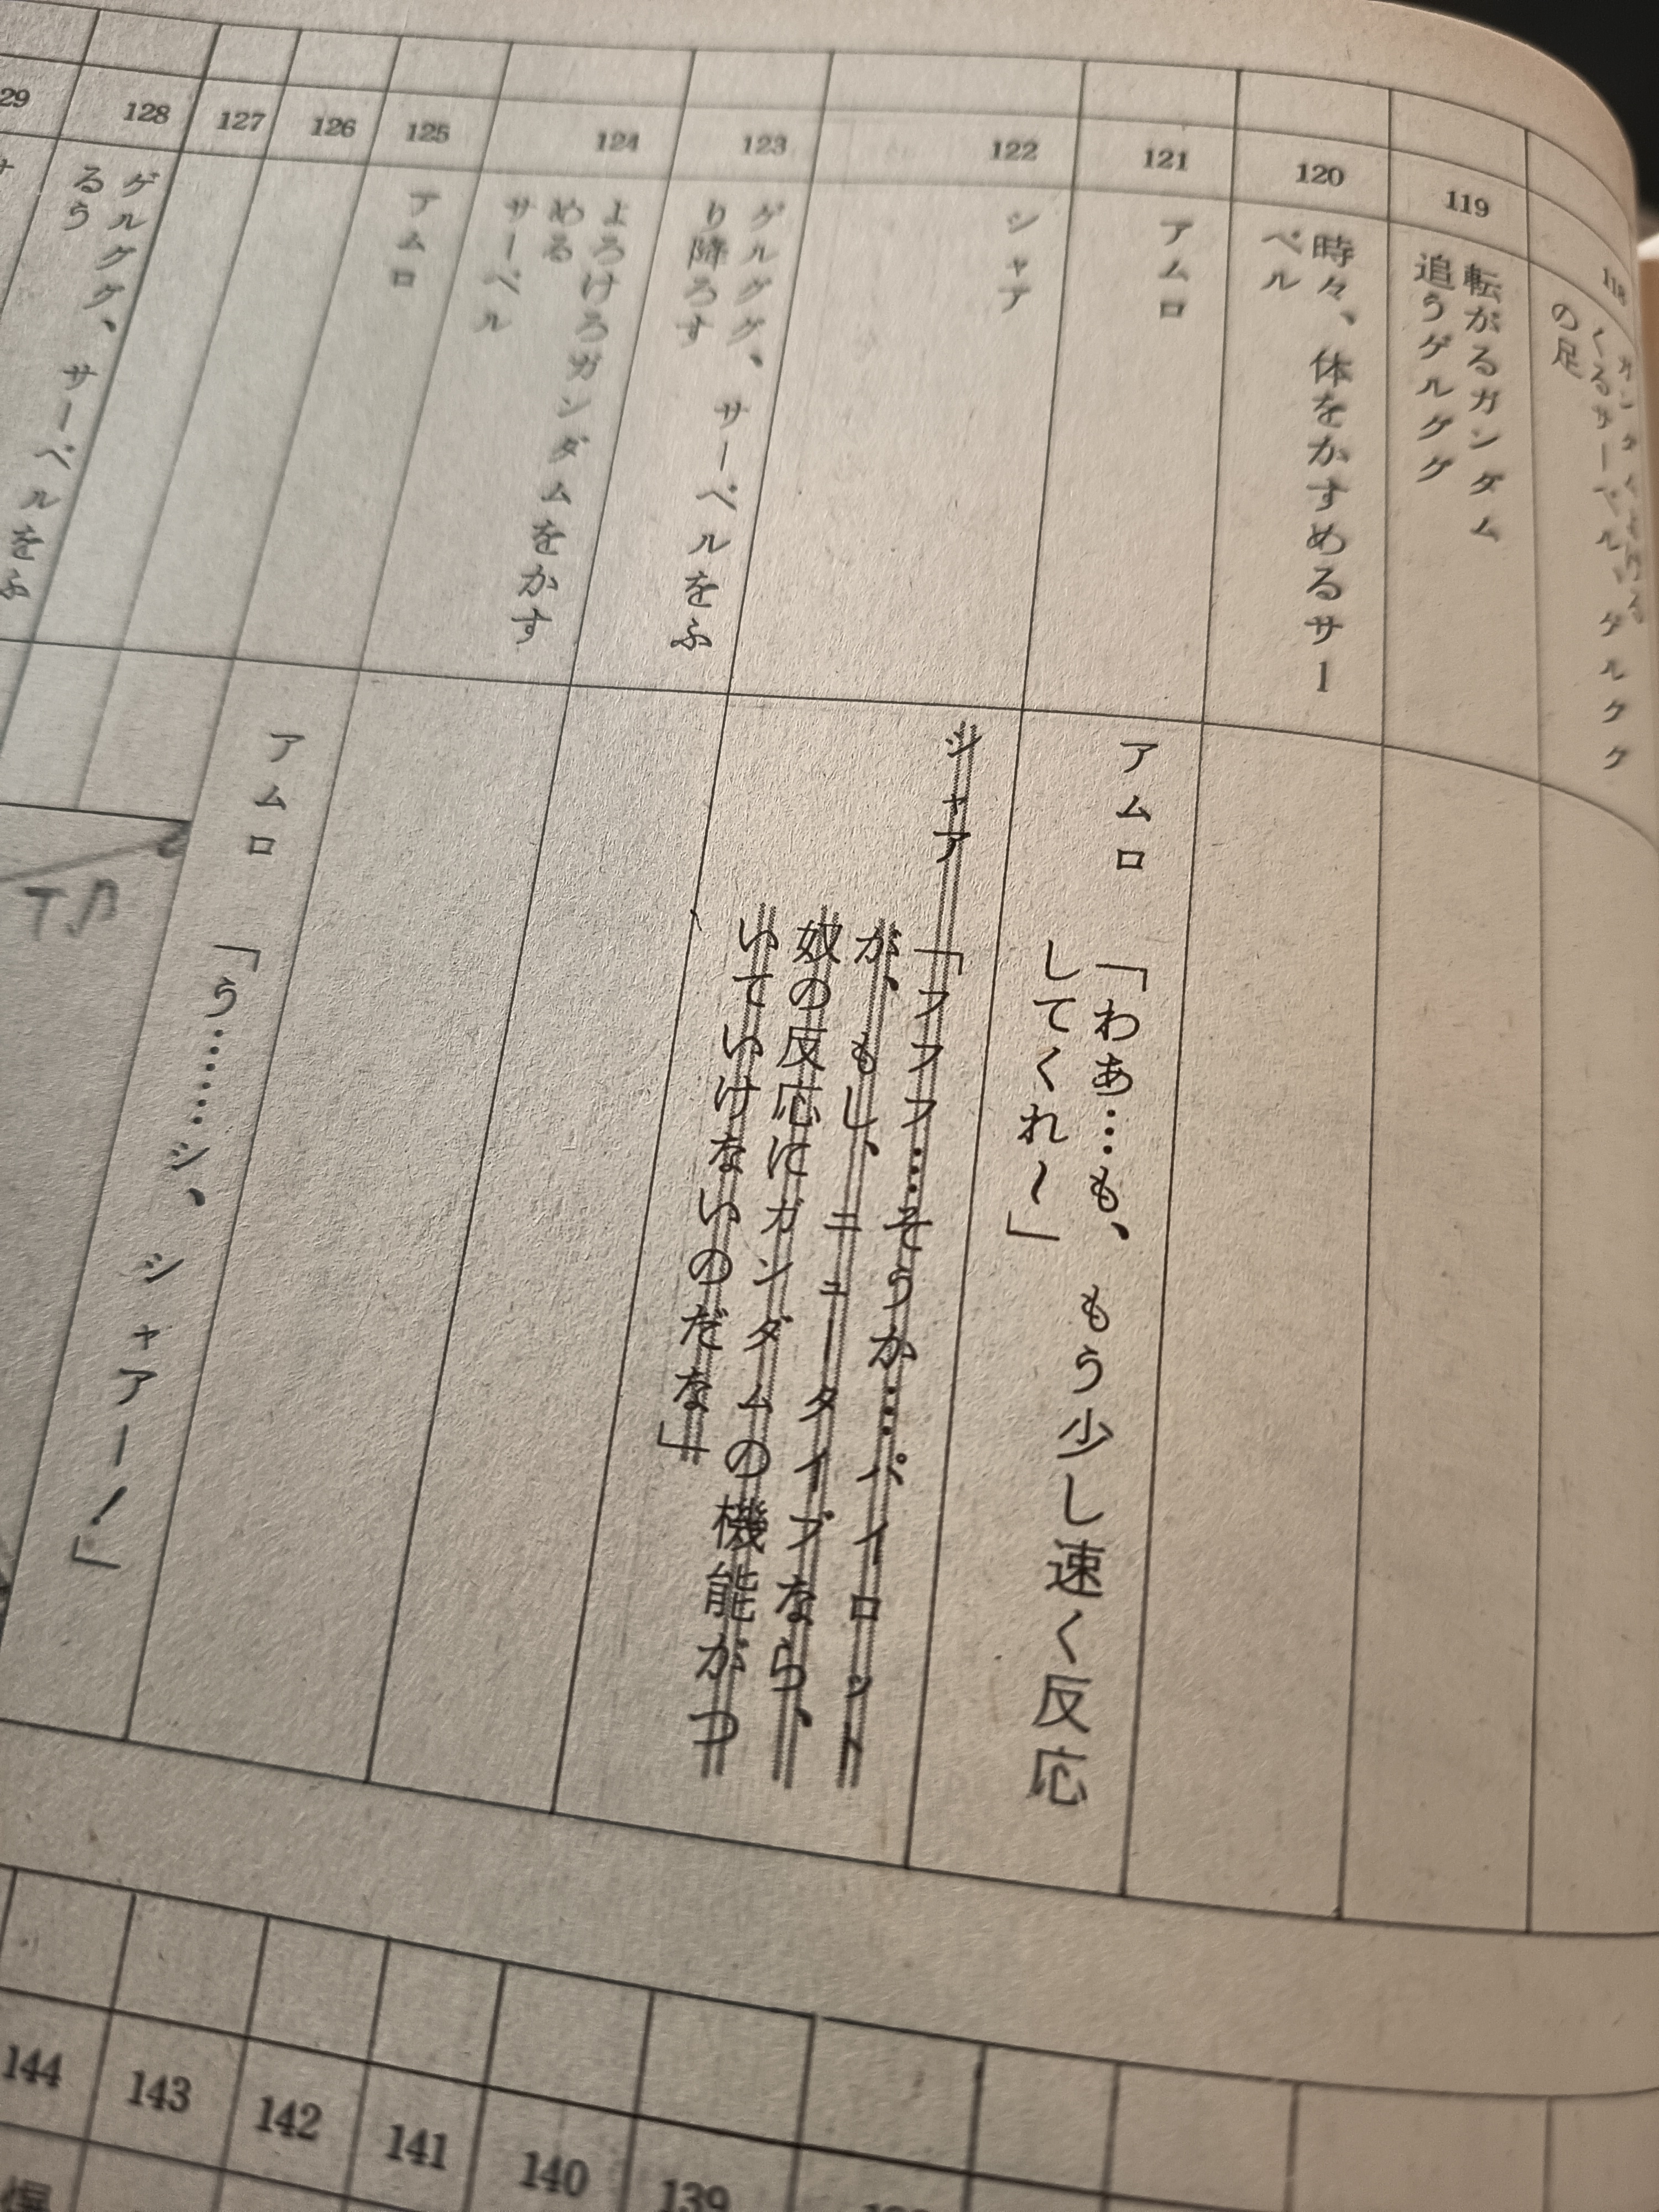 118
くるサーベル、ゲルググ
の足
119
転がるガンダム
追うゲルググ
120
時々、体をかすめるサー
ベル
121
アムロ
アムロ
「わあ…も、もう少し速く反応
してくれ〜」
122
シャア
シャア
「フフフ…そうか…パイロット
が、もし、ニュータイプなら、
奴の反応にガンダムの機能がつ
いていけないのだな」
123
ゲルググ、サーベルをふ
り降ろす
124
よろけろガンダムをかす
める
サーベル
125
アムロ
126
127
アムロ
「う……シ、シャアー!」
128
ゲルググ、サーベルをふ
るう
29
139
140
141
142
143
144
爆